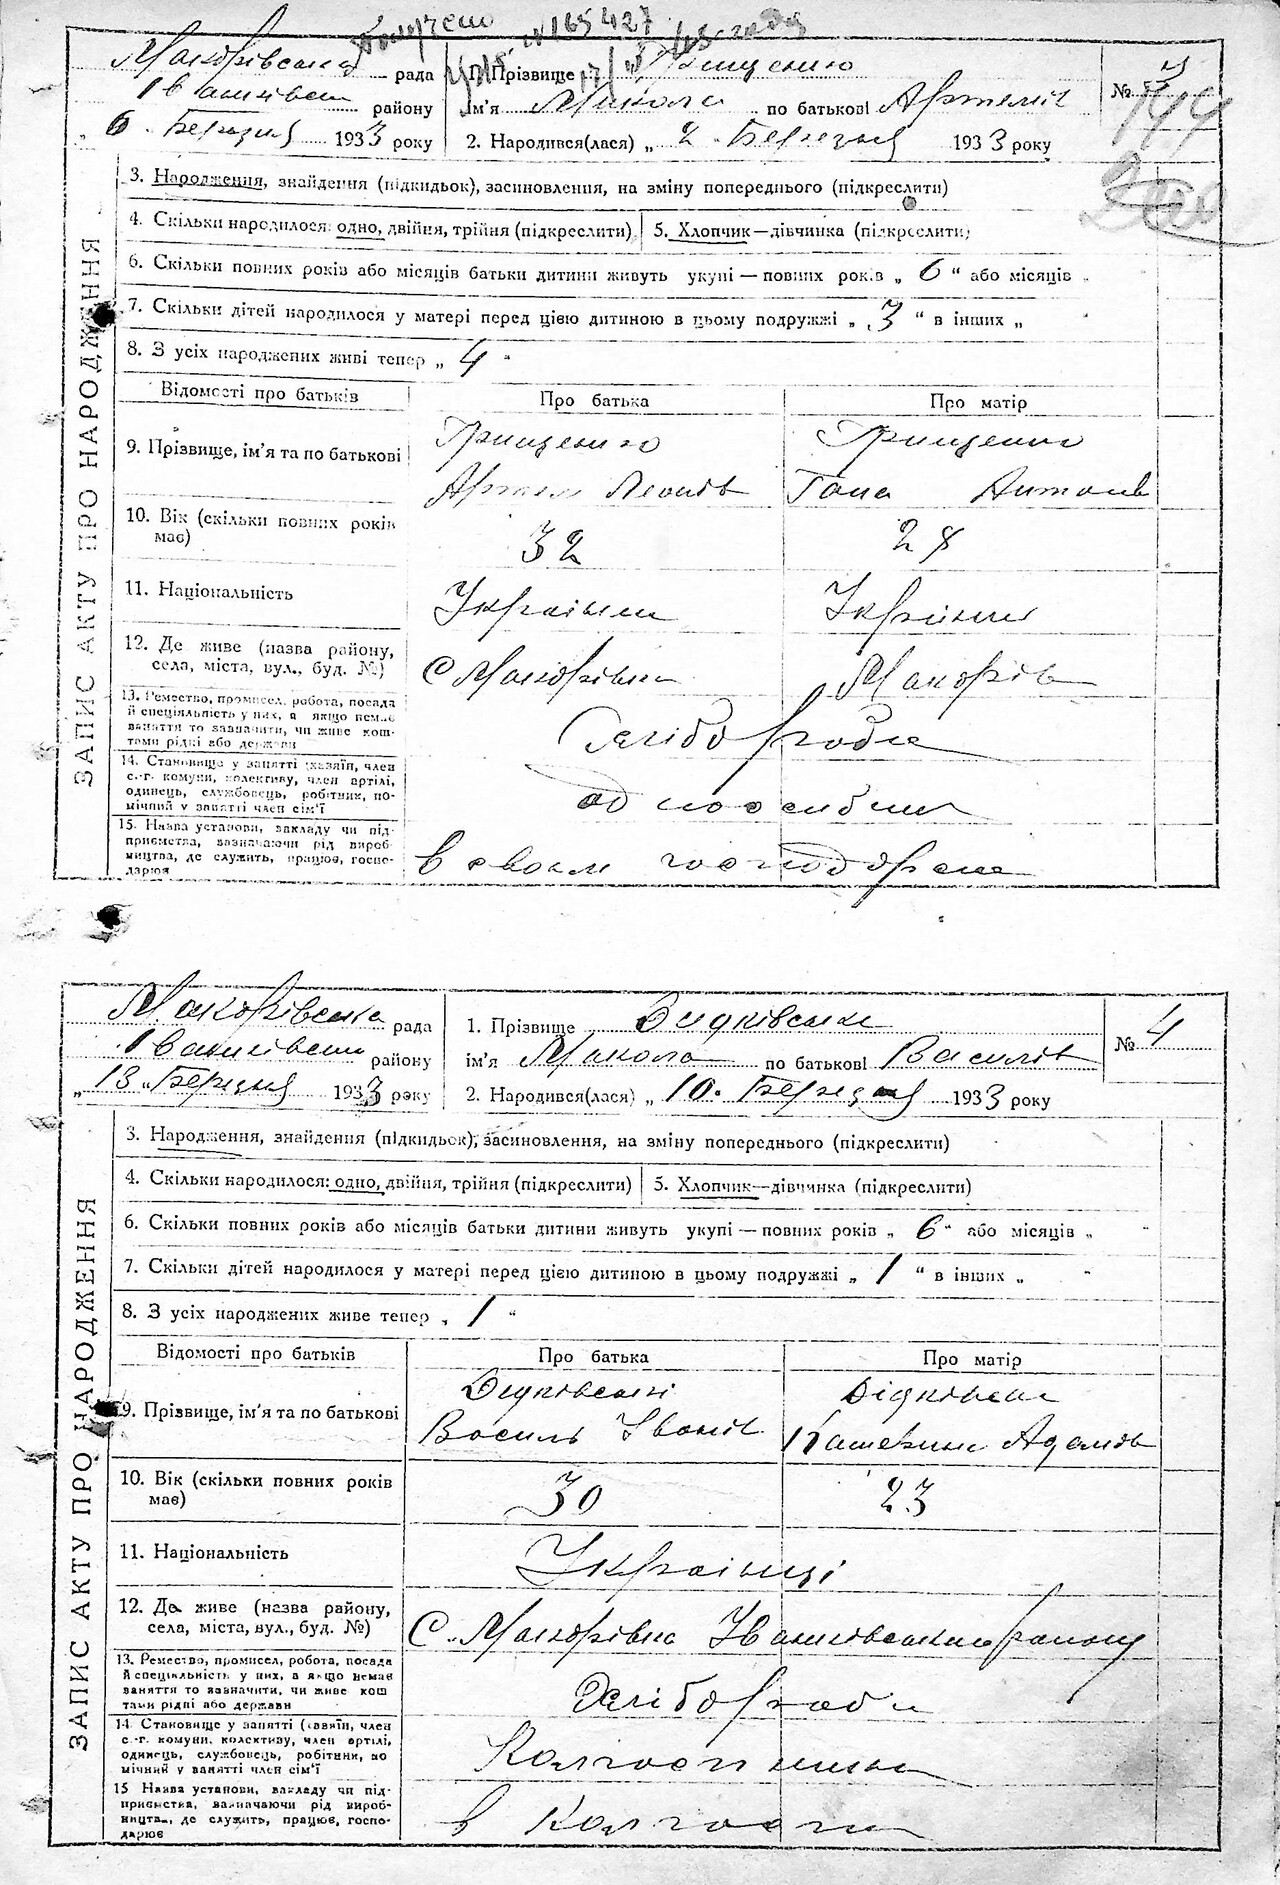 Получено
№165427
Макорівська рада
Іванківськ району
„ 6 „ Березня 1933 року
1. Прізвище Грищенко
ім'я Микола по батькові Артемів
2. Народився(лася) „ 2 „ Березня 1933 року
№ 3
ЗАПИС АКТУ ПРО НАРОДЖЕННЯ
3. Народження, знайдення (підкидьок), засиновлення, на зміну попереднього (підкреслити)
4. Скільки народилося: одно, двійня, трійня (підкреслити)
5. Хлопчик—дівчинка (підкреслити)
6. Скільки повних років або місяців батьки дитини живуть укупі — повних років „ 6 “ або місяців „
7. Скільки дітей народилося у матері перед цією дитиною в цьому подружжі „ 3 “ в інших „
8. З усіх народжених живі тепер „ 4 “
Відомості про батьків
Про батька
Про матір
9. Прізвище, ім'я та по батькові
Грищенко
Артем Леонів
Грищенко
Гана Антонів
10. Вік (скільки повних років має)
32
28
11. Національність
Українец
Українка
12. Де живе (назва району,
села, міста, вул., буд. №)
С Макорівка
Макорів
13. Ремество, промисел, робота, посада
й спеціяльність у них, а якщо немає
заняття то зазначити, чи живе кош-
тами рідні або держави
Хліборобы
14. Становище у занятті (хазяїн, член
с.-г. комуни, колективу, член артілі,
одинець, службовець, робітник, по-
мічний у занятті член сім'ї
одноосібник
15. Назва установи, закладу чи під-
приємства, зазначаючи рід вироб-
ництва, де служить, працює, госпо-
дарює
в своем господорстве
Макорівська рада
Іванківськ району
„ 13 „ Березня 1933 року
1. Прізвище Дидківський
ім'я Микола по батькові Василів
2. Народився(лася) „ 10 „ Березня 1933 року
№ 4
ЗАПИС АКТУ ПРО НАРОДЖЕННЯ
3. Народження, знайдення (підкидьок), засиновлення, на зміну попереднього (підкреслити)
4. Скільки народилося: одно, двійня, трійня (підкреслити)
5. Хлопчик—дівчинка (підкреслити)
6. Скільки повних років або місяців батьки дитини живуть укупі — повних років „ 6 “ або місяців „
7. Скільки дітей народилося у матері перед цією дитиною в цьому подружжі „ 1 “ в інших „
8. З усіх народжених живе тепер „ 1 “
Відомості про батьків
Про батька
Про матір
9. Прізвище, ім'я та по батькові
Дидківські
Василь Іванів
Дідківська
Катерина Адамів
10. Вік (скільки повних років має)
30
23
11. Національність
Українці
12. Де живе (назва району,
села, міста, вул., буд. №)
С. Макорівка Іванківського району
13. Ремество, промисел, робота, посада
й спеціяльність у них, а якщо немає
заняття то зазначити, чи живе кош
тами рідні або держави
Хлібороби
14. Становище у занятті (хазяїн, член
с.-г. комуни, колективу, член артілі,
одинець, службовець, робітник, по
мічний у занятті член сім'ї
Колгоспники
15 Назва установи, закладу чи під-
приємства, зазначаючи рід вироб-
ництва, де служить, працює, госпо-
дарює
в колгоспи